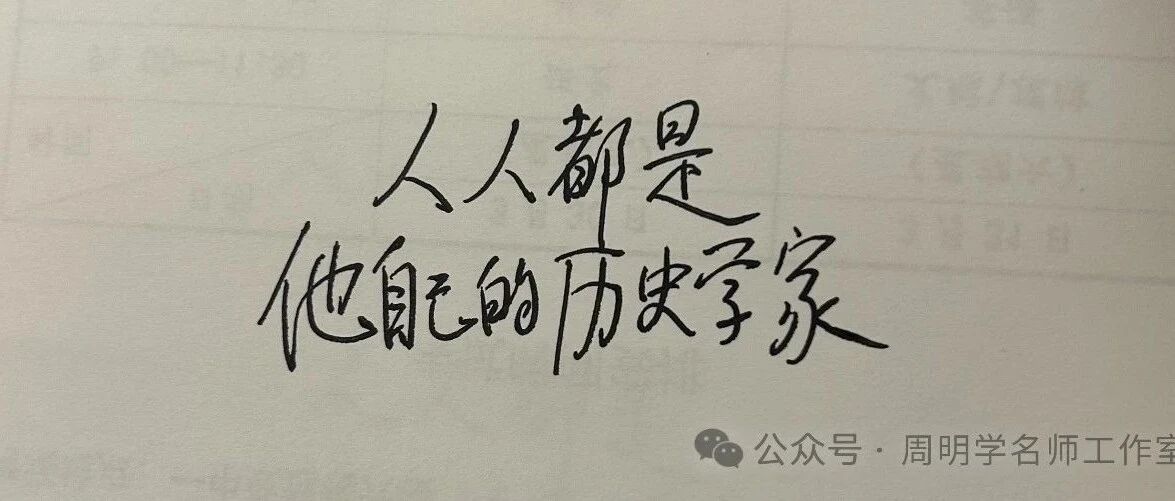 人人都是
他自己的历史学家
公众号 · 周明学名师工作室